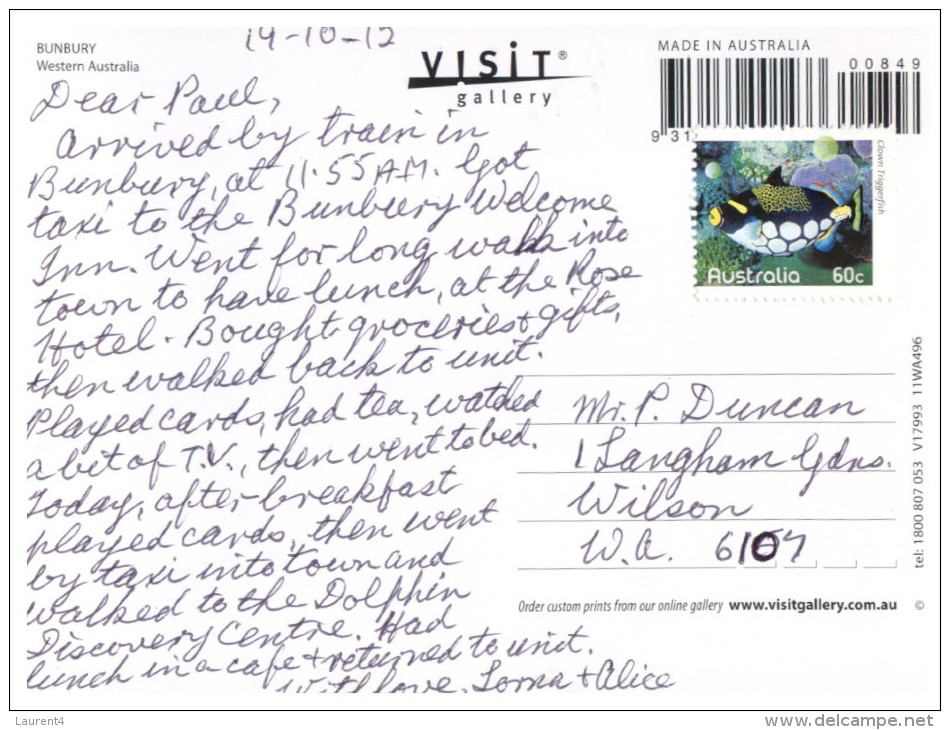 14-10-12
BUNBURY
Western Australia
VISiT®
gallery
MADE IN AUSTRALIA
00849
931
Clown Triggerfish
Australia 60c
Dear Paul,
Arrived by train in
Bunbury, at 11.55 AM. Got
taxi to the Bunbury Welcome
Inn. Went for long walk into
town to have lunch, at the Rose
Hotel. Bought groceries + gifts,
then walked back to unit.
Played cards, had tea, watched
a bit of T.V., then went to bed.
Today, after breakfast
played cards, then went
by taxi into town and
walked to the Dolphin
Discovery Centre. Had
lunch in a cafe + returned to unit.
With love, Lorna + Alice
Mr. P. Duncan
1 Langham Gdns.
Wilson
W.A. 6107
Order custom prints from our online gallery www.visitgallery.com.au ©
tel: 1800 807 053 V17993 11WA496
Laurent4
www.delcampe.net